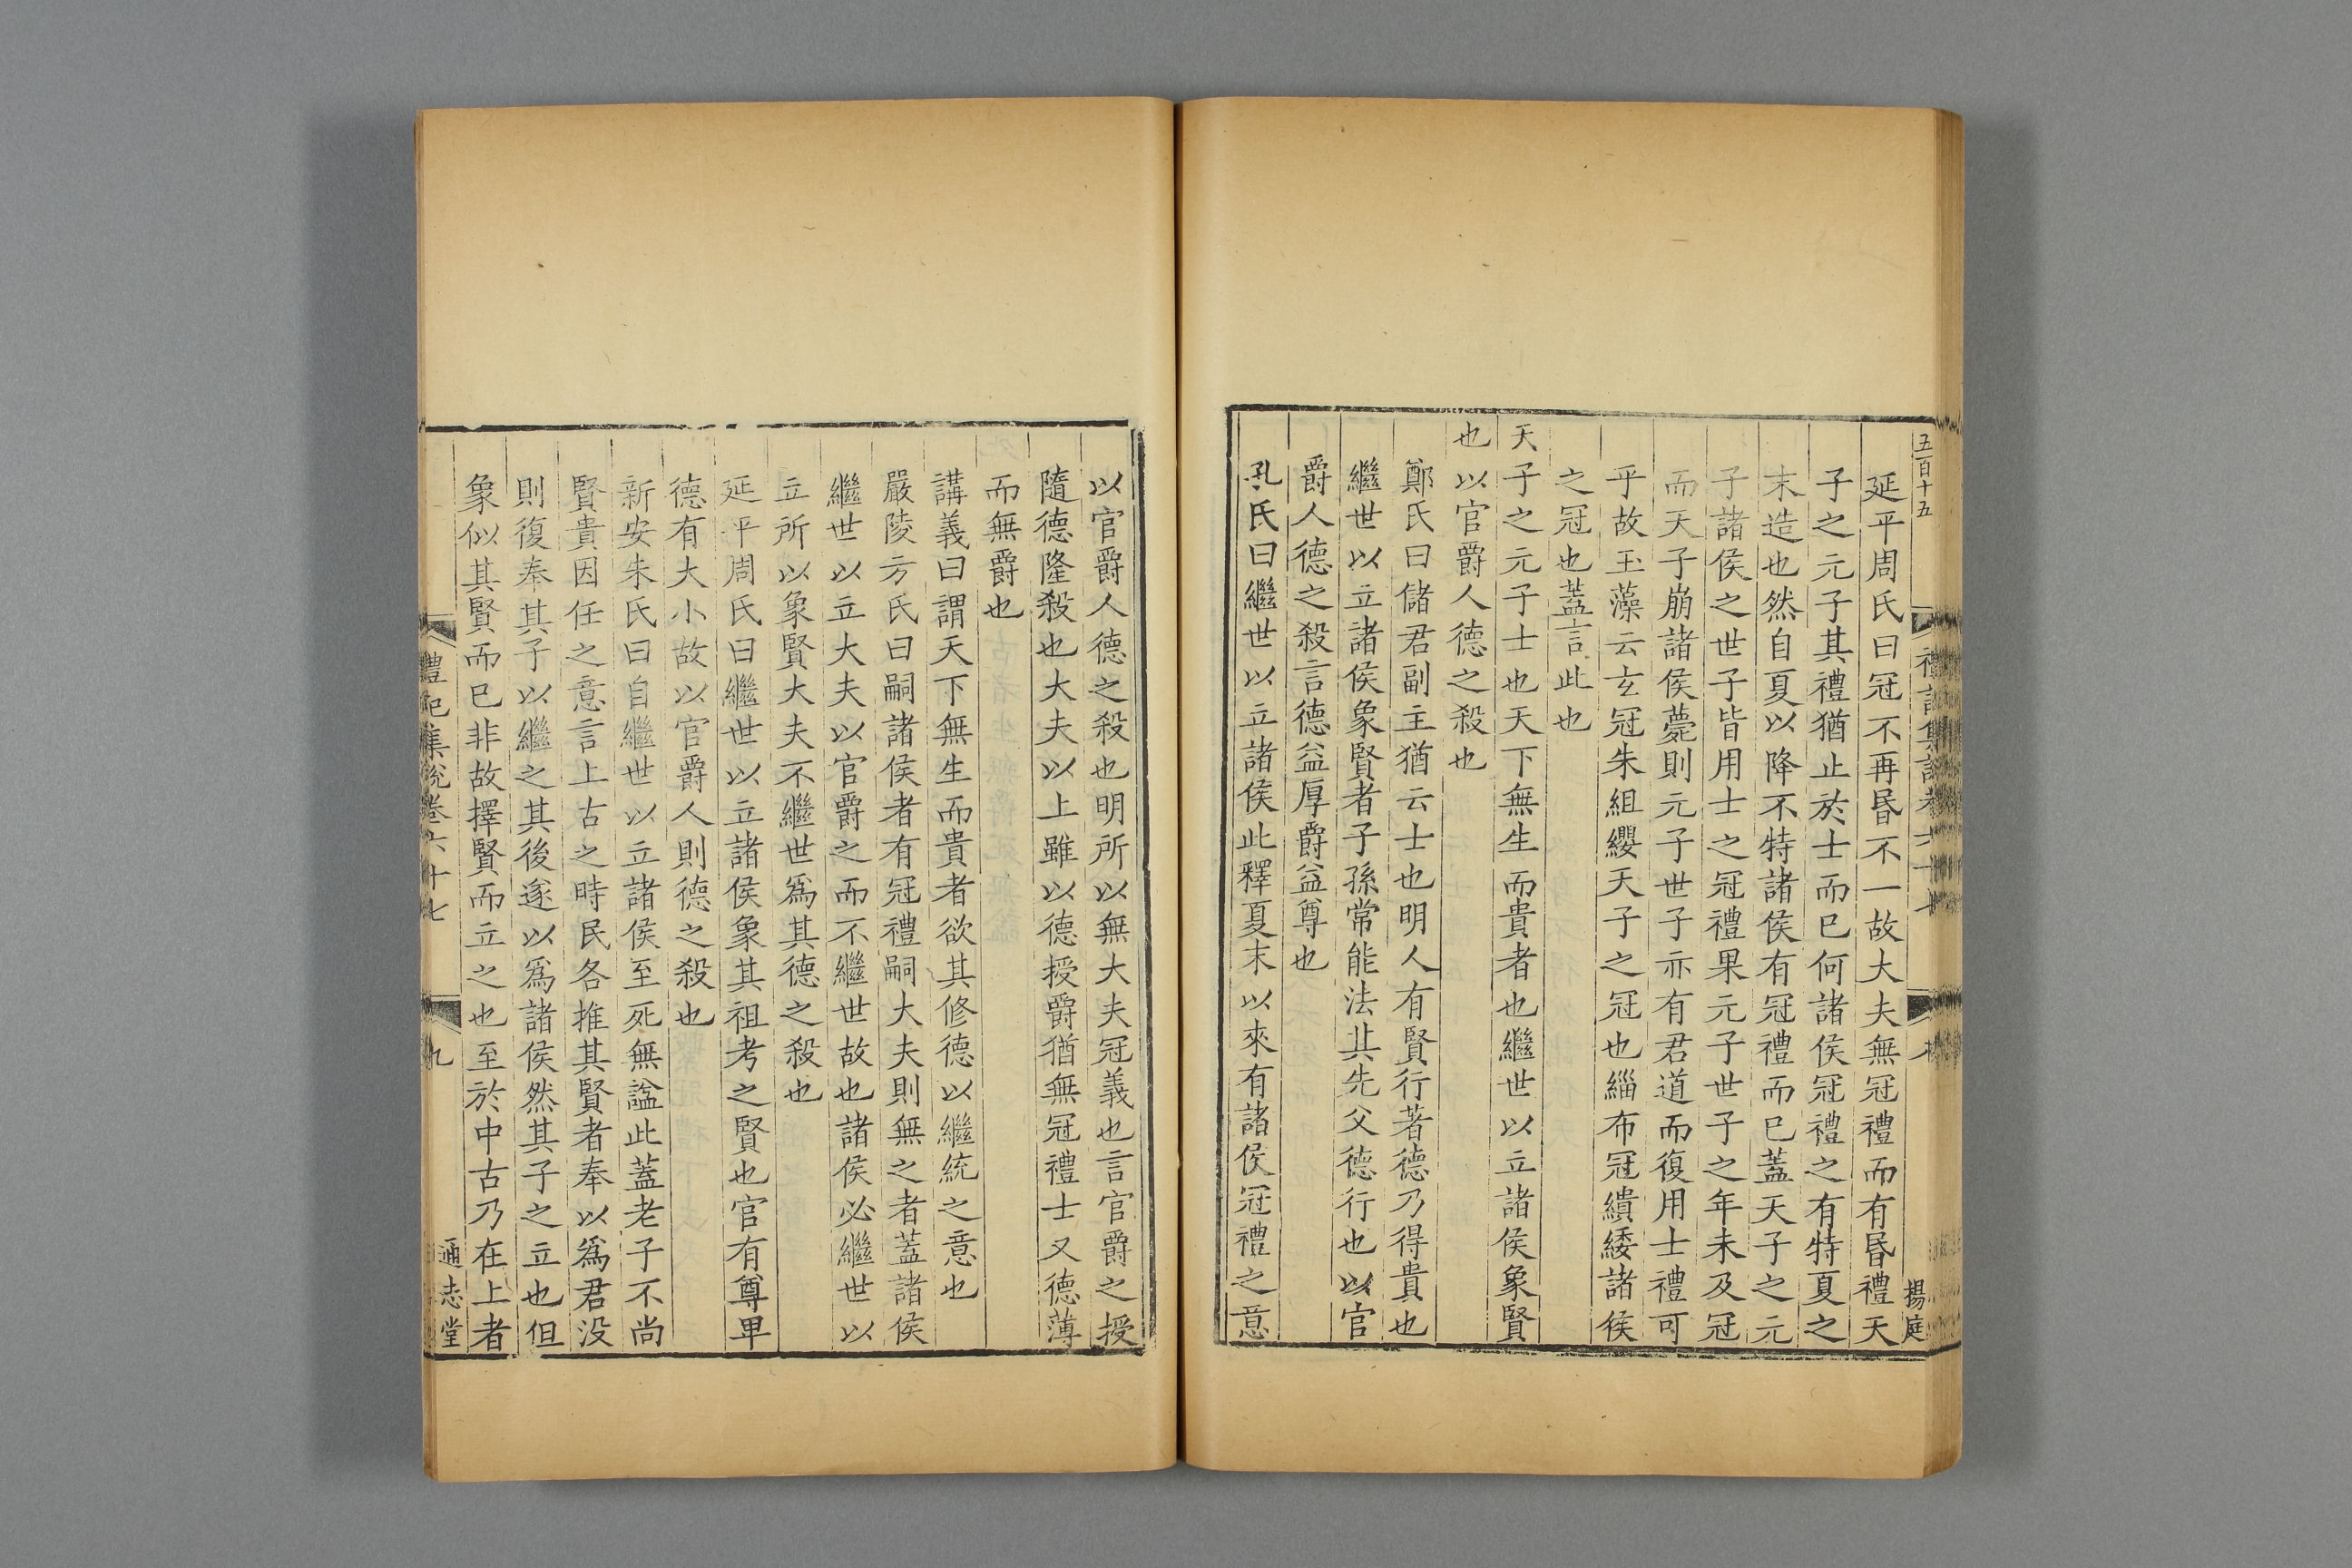 五百十五
禮記集說卷六十七
八
揚庭
延平周氏曰冠不再昬不一故大夫無冠禮而有昬禮天
子之元子其禮猶止於士而已何諸侯冠禮之有特夏之
末造也然自夏以降不特諸侯有冠禮而已蓋天子之元
子諸侯之世子皆用士之冠禮果元子世子之年未及冠
而天子崩諸侯薨則元子世子亦有君道而復用士禮可
乎故玉藻云玄冠朱組纓天子之冠也緇布冠繢緌諸侯
之冠也蓋言此也
天子之元子士也天下無生而貴者也繼世以立諸侯象賢
也以官爵人德之殺也
鄭氏曰儲君副主猶云士也明人有賢行著德乃得貴也
繼世以立諸侯象賢者子孫常能法其先父德行也以官
爵人德之殺言德益厚爵益尊也
孔氏曰繼世以立諸侯此釋夏末以來有諸侯冠禮之意
以官爵人德之殺也明所以無大夫冠義也言官爵之授
隨德隆殺也大夫以上雖以德授爵猶無冠禮士又德薄
而無爵也
講義曰謂天下無生而貴者欲其修德以繼統之意也
嚴陵方氏曰嗣諸侯者有冠禮嗣大夫則無之者蓋諸侯
繼世以立大夫以官爵之而不繼世故也諸侯必繼世以
立所以象賢大夫不繼世爲其德之殺也
延平周氏曰繼世以立諸侯象其祖考之賢也官有尊卑
德有大小故以官爵人則德之殺也
新安朱氏曰自繼世以立諸侯至死無諡此蓋老子不尚
賢貴因任之意言上古之時民各推其賢者奉以爲君没
則復奉其子以繼之其後遂以爲諸侯然其子之立也但
象似其賢而已非故擇賢而立之也至於中古乃在上者
禮記集說卷六十七
九
通志堂